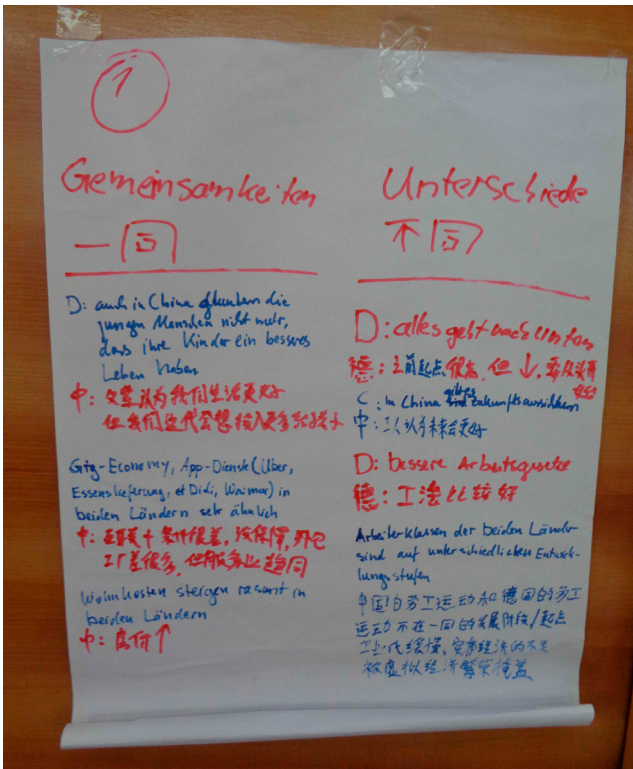 1
Gemeinsamkeiten
一同
D: auch in China glauben die
jungen Menschen nicht mehr,
dass ihre Kinder ein besseres
Leben haben
中: 父辈认为我们生活更好
但我们这代会想投入更多给孩子
Gig-Economy, App-Dienste (Uber,
Essenslieferung, Didi, Waimai) in
beiden Ländern sehr ähnlich
中: 互联 条件很差, 没保障, 外包
工厂差很多, 但服务业趋同
Wohnkosten steigen rasant in
beiden Ländern
中: 房价↑
Unterschiede
不同
D: alles geht nach unten
德: 之前起点很高, 但↓, 要从头开
始
C: in China gute Zukunftsaussichten
中: 工人认为未来会更好
D: bessere Arbeitsgesetze
德: 工法比较好
Arbeiterklassen der beiden Länder
sind auf unterschiedlichen Entwick-
lungsstufen
中国的劳工运动和德国的劳工
运动不在一同的发展阶段/起点
工业化缓慢, 实体经济的不足
被虚拟经济繁荣掩盖